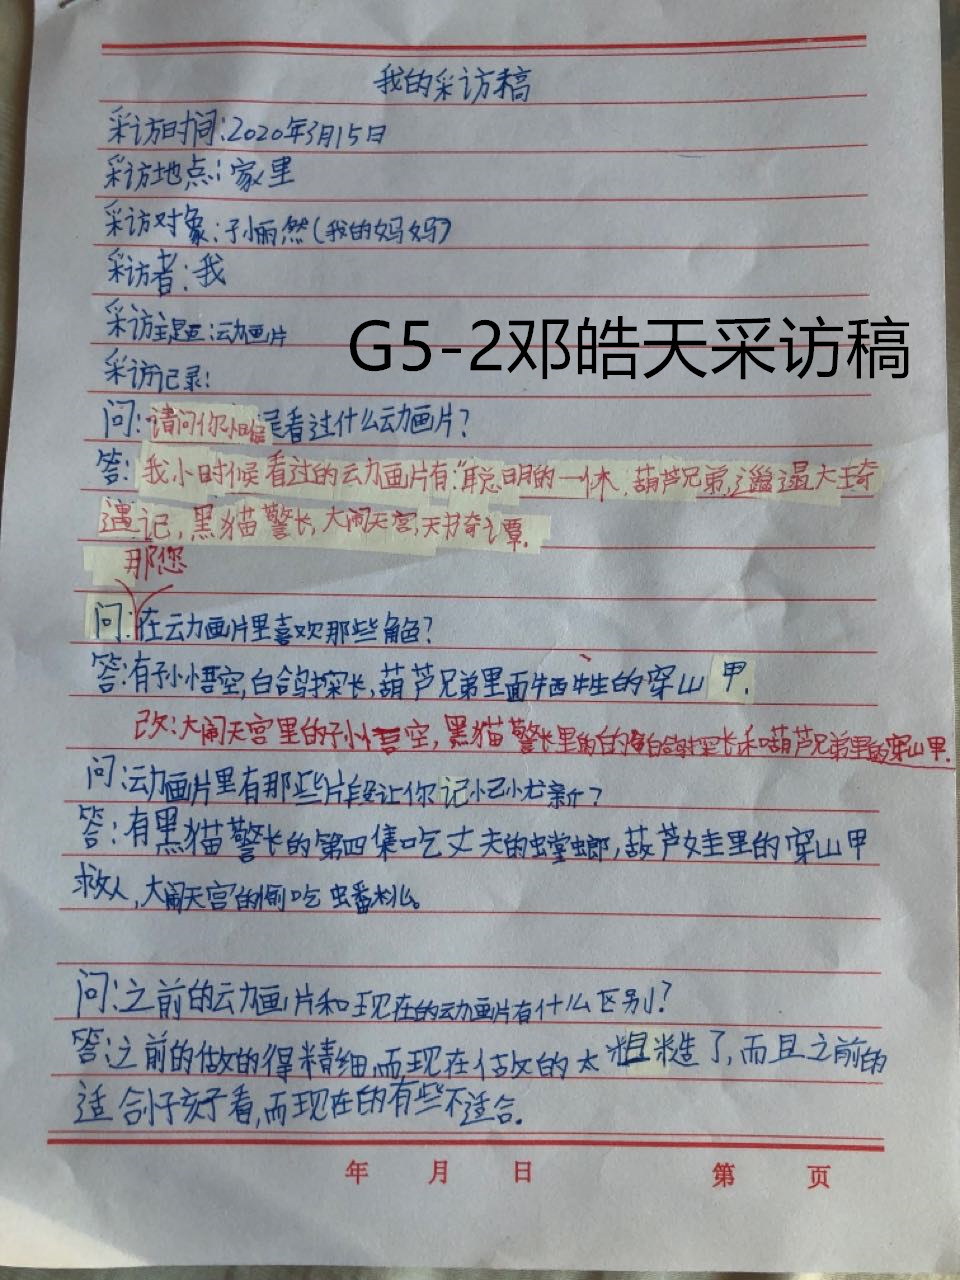 我的采访稿
采访时间:2020年3月15日
采访地点:家里
采访对象:孙丽然(我的妈妈)
采访者:我
采访主题:动画片
G5-2邓皓天采访稿
采访记录:
问:请问你小时候是看过什么动画片?
答:我小时候看过的动画片有:"聪明的一休,葫芦兄弟,邋遢大王奇
遇记,黑猫警长,大闹天宫,天书奇谭.
那您
问:在动画片里喜欢那些角色?
答:有孙悟空,白鸽探长,葫芦兄弟里面牺牲的穿山甲.
改:大闹天宫里的孙悟空,黑猫警长里的白鸽探长和葫芦兄弟里的穿山甲.
问:动画片里有那些片段让你记忆尤新?
答:有黑猫警长的第四集吃丈夫的螳螂,葫芦娃里的穿山甲
救人,大闹天宫的偷吃蟠桃。
问:之前的动画片和现在的动画片有什么区别?
答:之前的做的得精细,而现在做的太粗糙了,而且之前的
适合小孩子看,而现在的有些不适合.
年 月 日 第 页